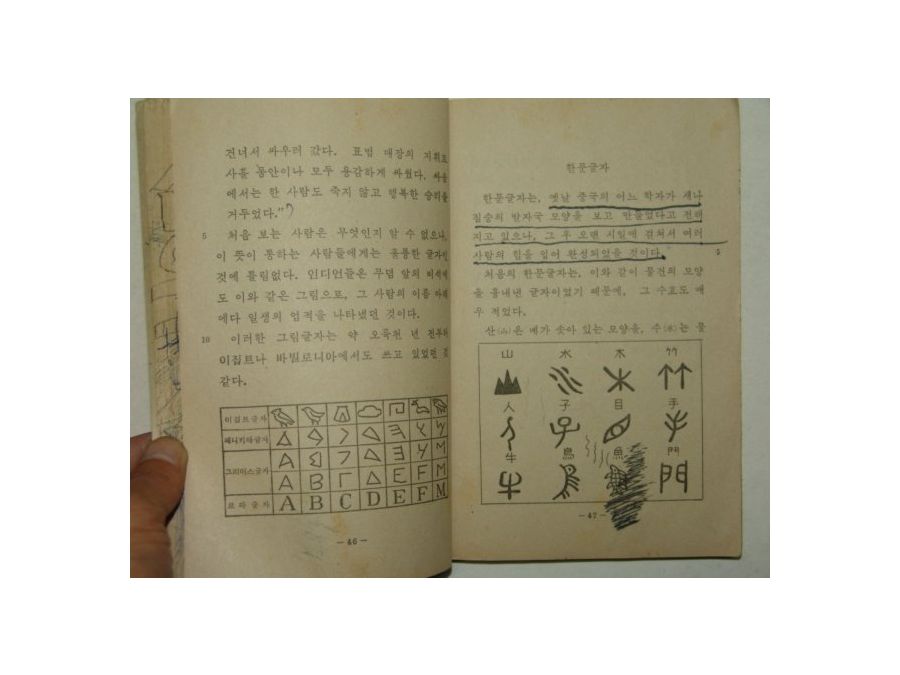 건너서 싸우러 갔다. 표범 대장의 지휘로
사흘 동안이나 모두 용감하게 싸웠다. 싸움
에서는 한 사람도 죽지 않고 행복한 승리를
거두었다.”
5 처음 보는 사람은 무엇인지 알 수 없으나,
이 뜻이 통하는 사람들에게는 훌륭한 글자인
것에 틀림없다. 인디언들은 무덤 앞의 비석에
도 이와 같은 그림으로, 그 사람의 이름 아래
에다 일생의 업적을 나타냈던 것이다.
10 이러한 그림글자는 약 오륙천 년 전부터
이집트나 바빌로니아에서도 쓰고 있었던 것
같다.
이집트글자
페니키아글자
그리이스글자
로마글자 A B C D E F M
— 46 —
한문글자
한문글자는, 옛날 중국의 어느 학자가 새나
짐승의 발자국 모양을 보고 만들었다고 전해
지고 있으나, 그 후 오랜 시일에 걸쳐서 여러
사람의 힘을 입어 완성되었을 것이다. 5
처음의 한문글자는, 이와 같이 물건의 모양
을 흉내낸 글자이었기 때문에, 그 수효도 매
우 적었다.
산(山)은 메가 솟아 있는 모양을, 수(水)는 물
山 水 木 竹
人 子 目 手
牛 鳥 魚 門
— 47 —